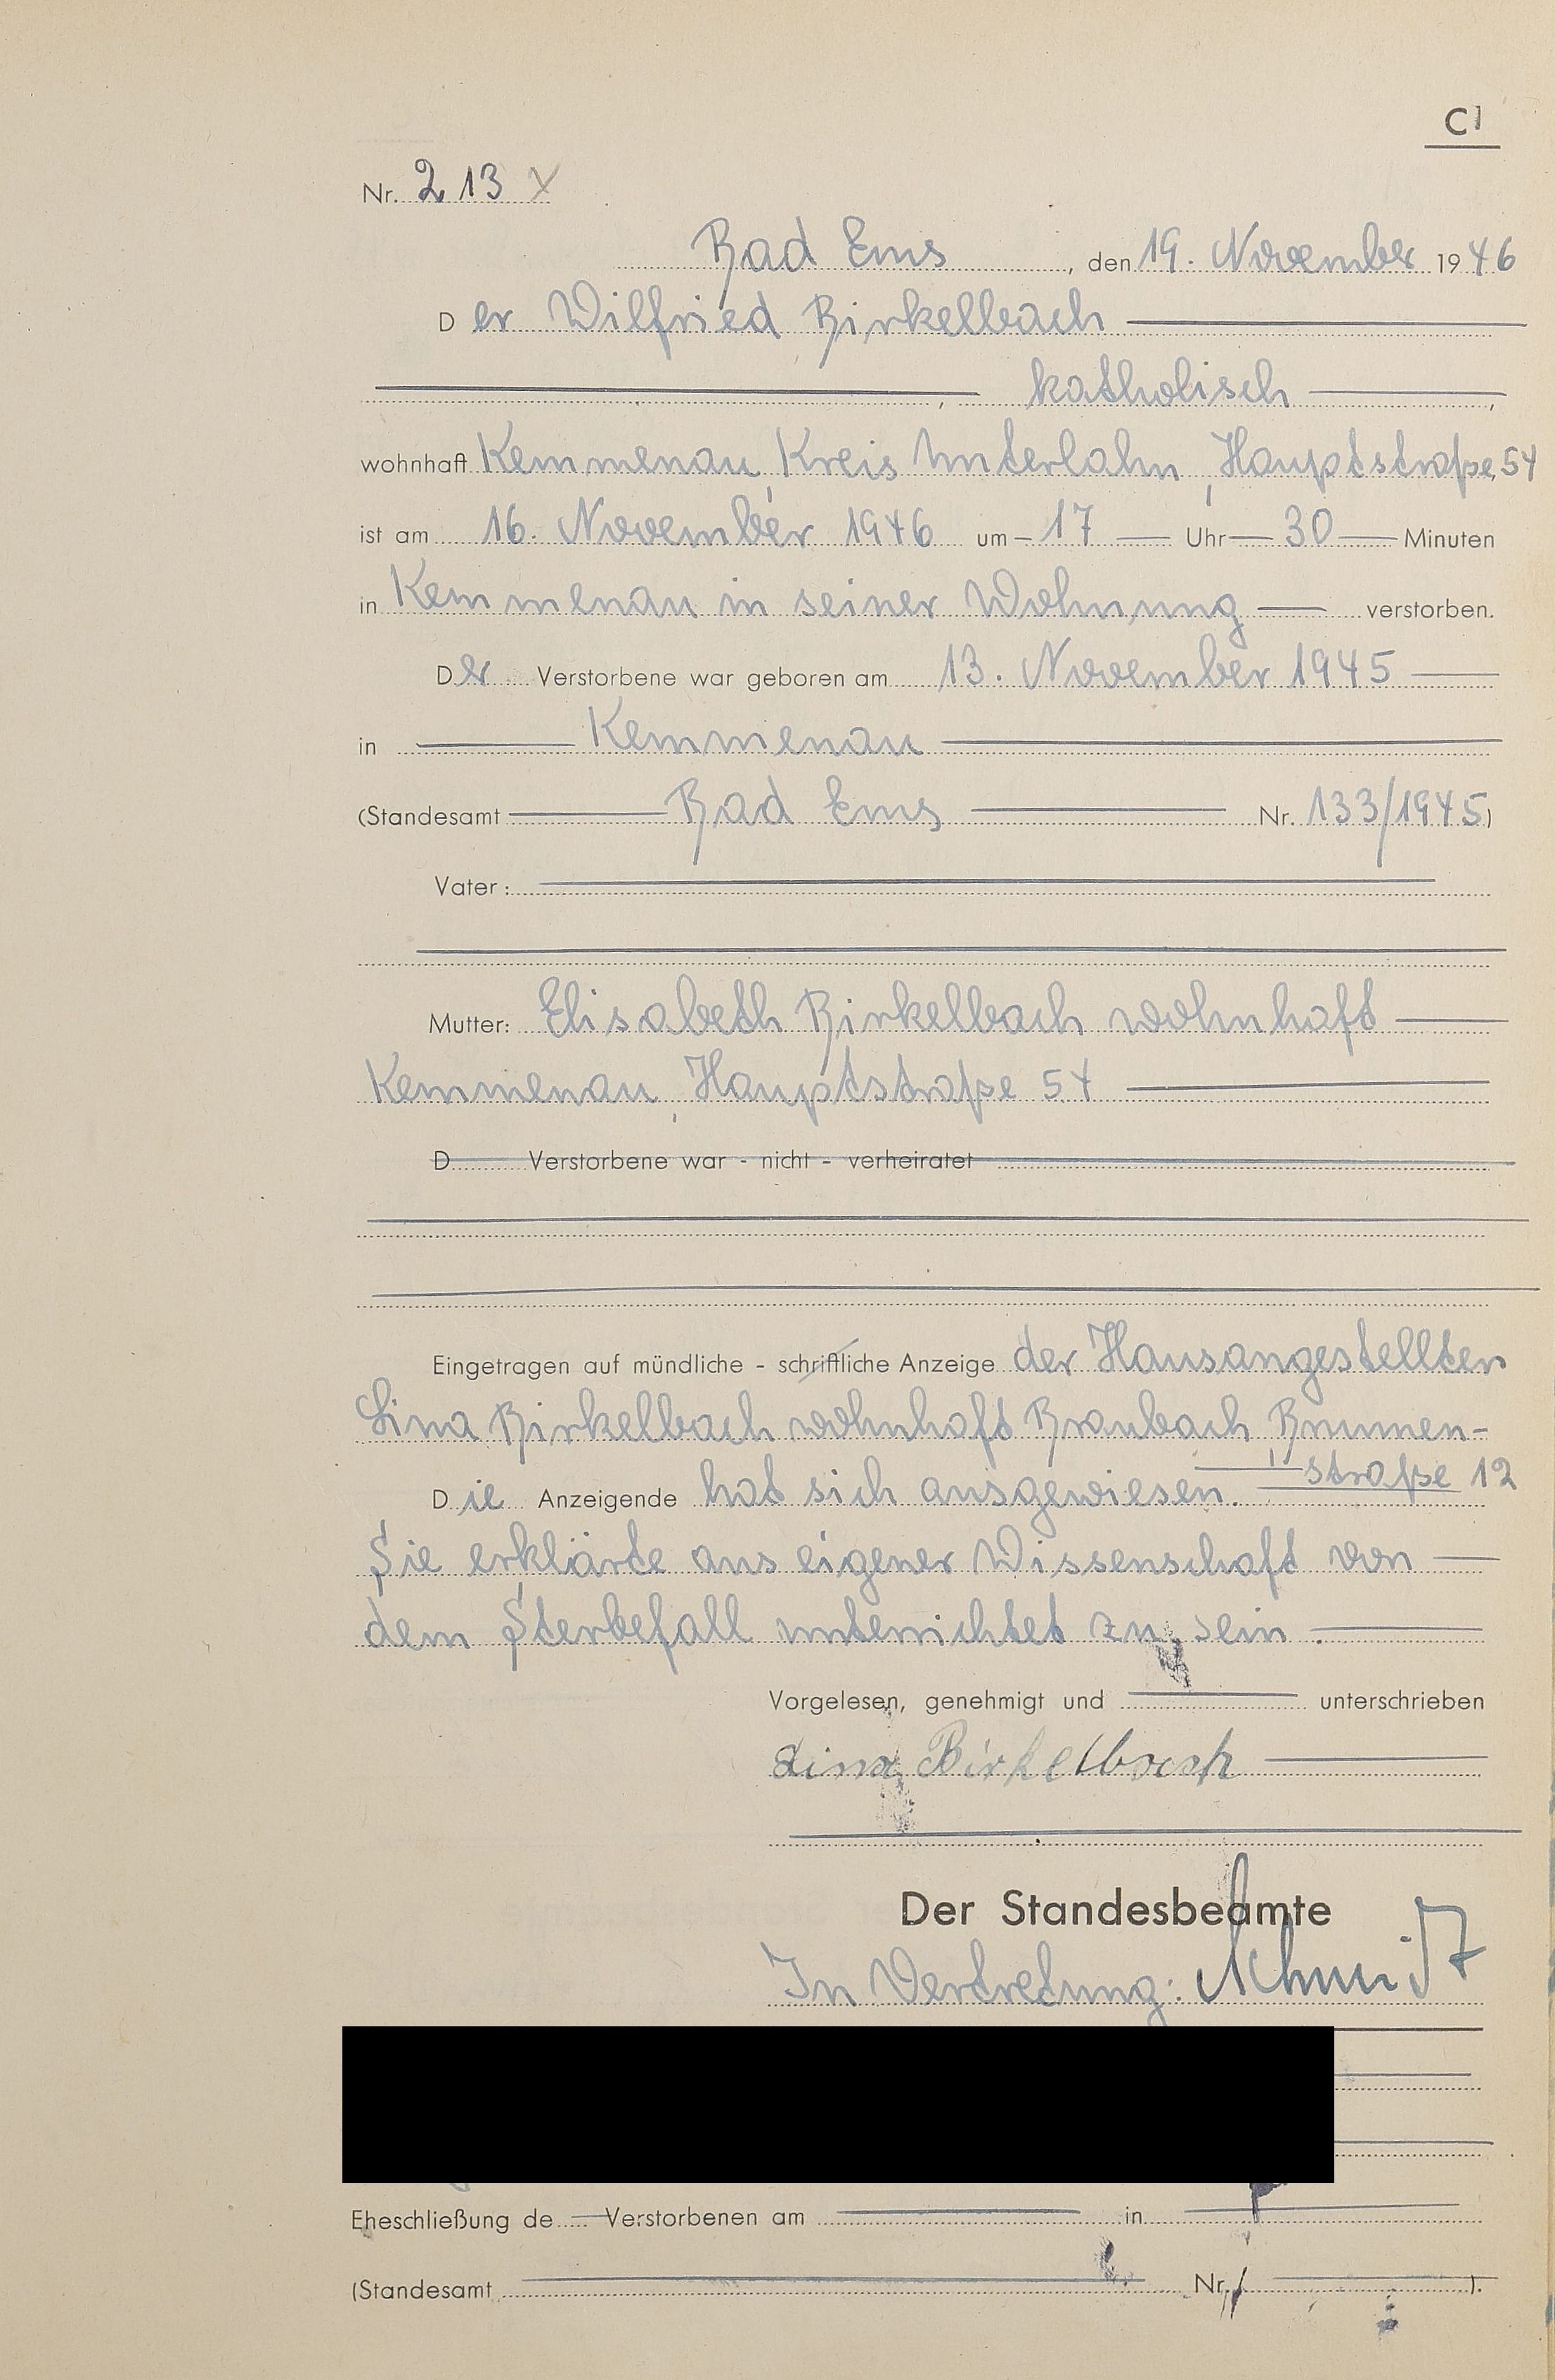 C1
Nr. 213 X
Bad Ems, den 19. November 1946
Der Wilfried Birkelbach
, katholisch,
wohnhaft Kemmenau, Kreis Unterlahn, Hauptstraße 54
ist am 16. November 1946 um 17 Uhr 30 Minuten
in Kemmenau in seiner Wohnung verstorben.
Der Verstorbene war geboren am 13. November 1945
in Kemmenau
(Standesamt Bad Ems Nr. 133/1945)
Vater:
Mutter: Elisabeth Birkelbach wohnhaft
Kemmenau, Hauptstraße 54
D Verstorbene war - nicht - verheiratet
Eingetragen auf mündliche - schriftliche Anzeige der Hausangestellten
Lina Birkelbach wohnhaft Braubach Brunnen-
straße 12
Die Anzeigende hat sich ausgewiesen.
Sie erklärte aus eigener Wissenschaft von
dem Sterbefall unterrichtet zu sein.
Vorgelesen, genehmigt und unterschrieben
Lina Birkelbach
Der Standesbeamte
In Vertretung: Schmidt
Eheschließung de Verstorbenen am in
(Standesamt Nr. ).